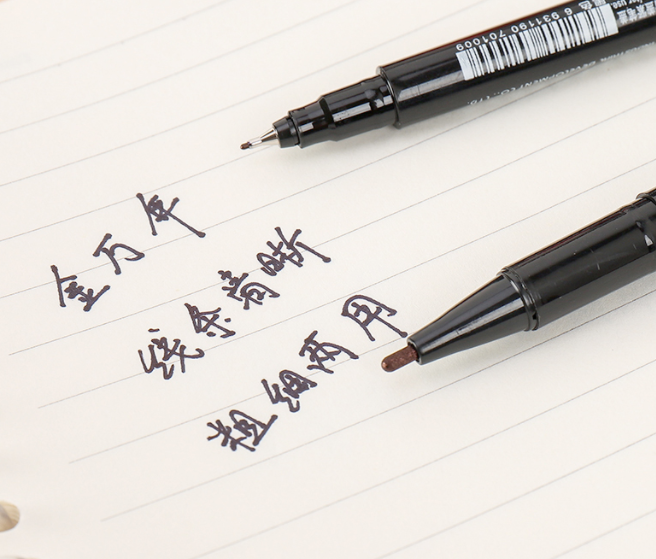 金万年
线条清晰
粗细两用
6 931190 701009